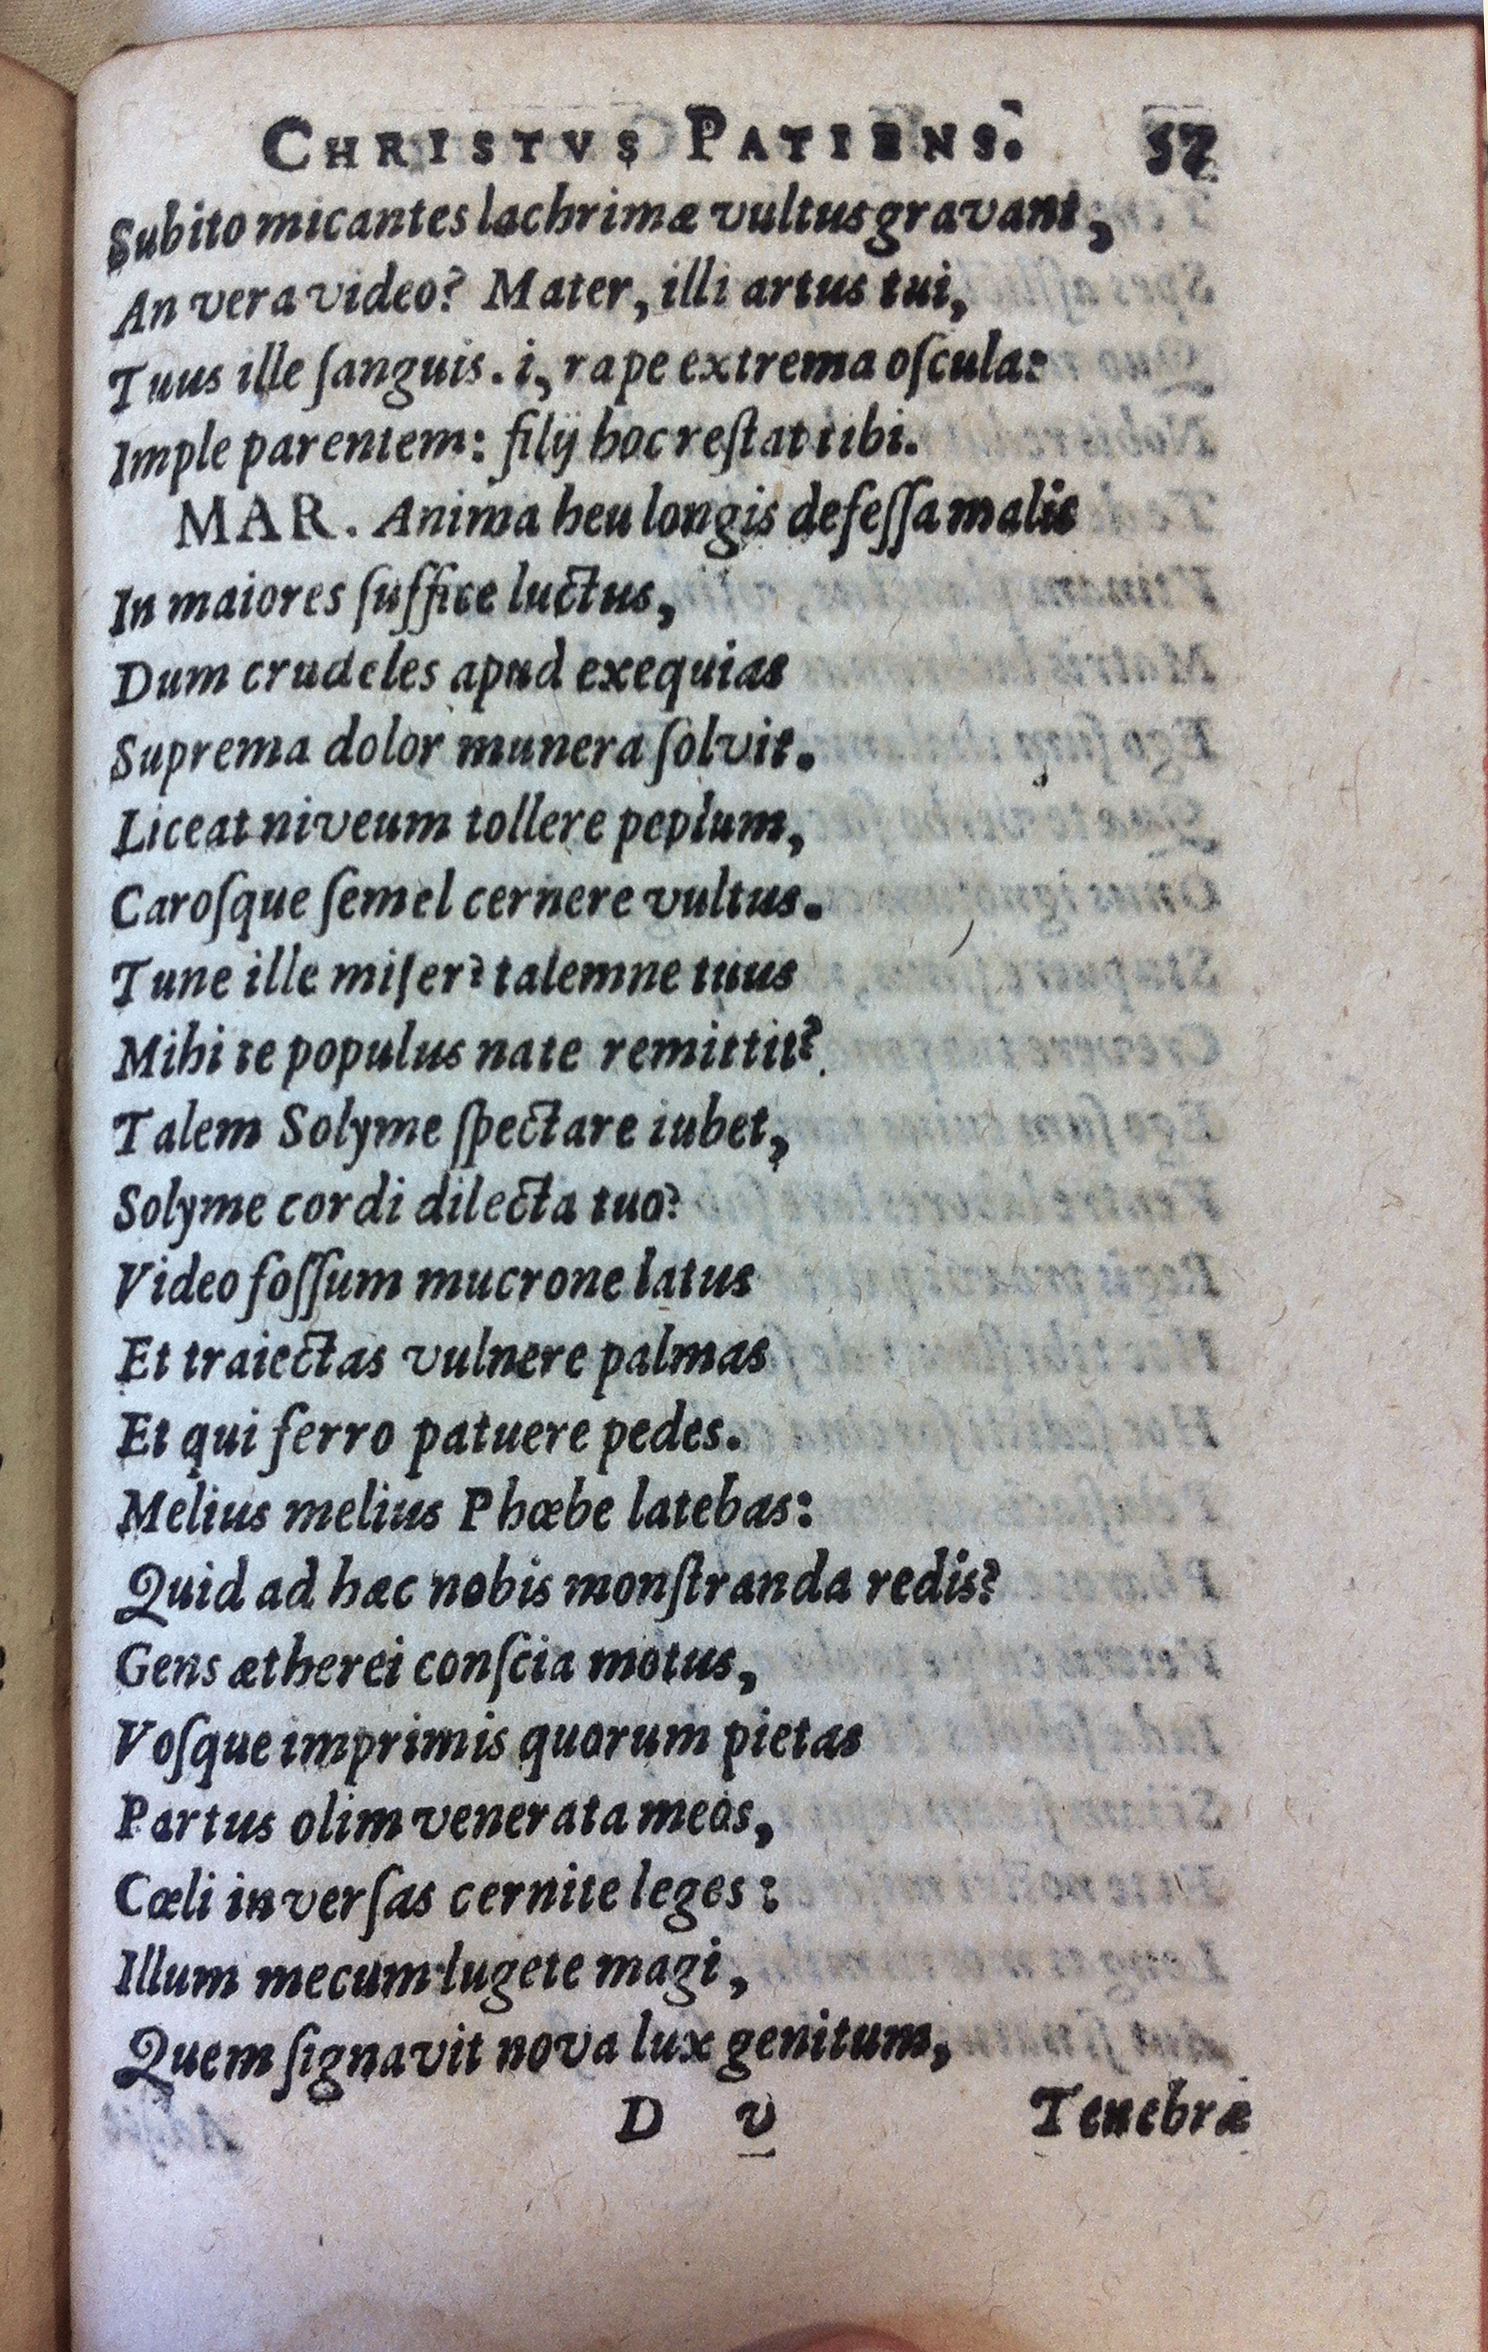 CHRISTVS PATIENS. 57
Subito micantes lachrimæ vultus gravant,
An vera video? Mater, illi artus tui,
Tuus ille ſanguis. i, rape extrema oſcula:
Imple parentem: filij hoc reſtat tibi.
MAR. Anima heu longis defeſſa malis
In maiores ſuffice luctus,
Dum crudeles apud exequias
Suprema dolor munera ſolvit.
Liceat niveum tollere peplum,
Caroſque ſemel cernere vultus.
Tune ille miſer? talemne tuus
Mihi te populus nate remittit?
Talem Solyme ſpectare iubet,
Solyme cordi dilecta tuo?
Video foſſum mucrone latus
Et traiectas vulnere palmas
Et qui ferro patuere pedes.
Melius melius Phœbe latebas:
Quid ad hæc nobis monſtranda redis?
Gens ætherei conſcia motus,
Voſque imprimis quorum pietas
Partus olim venerata meos,
Cœli inverſas cernite leges:
Illum mecum lugete magi,
Quem ſignavit nova lux genitum,
D v Tenebræ